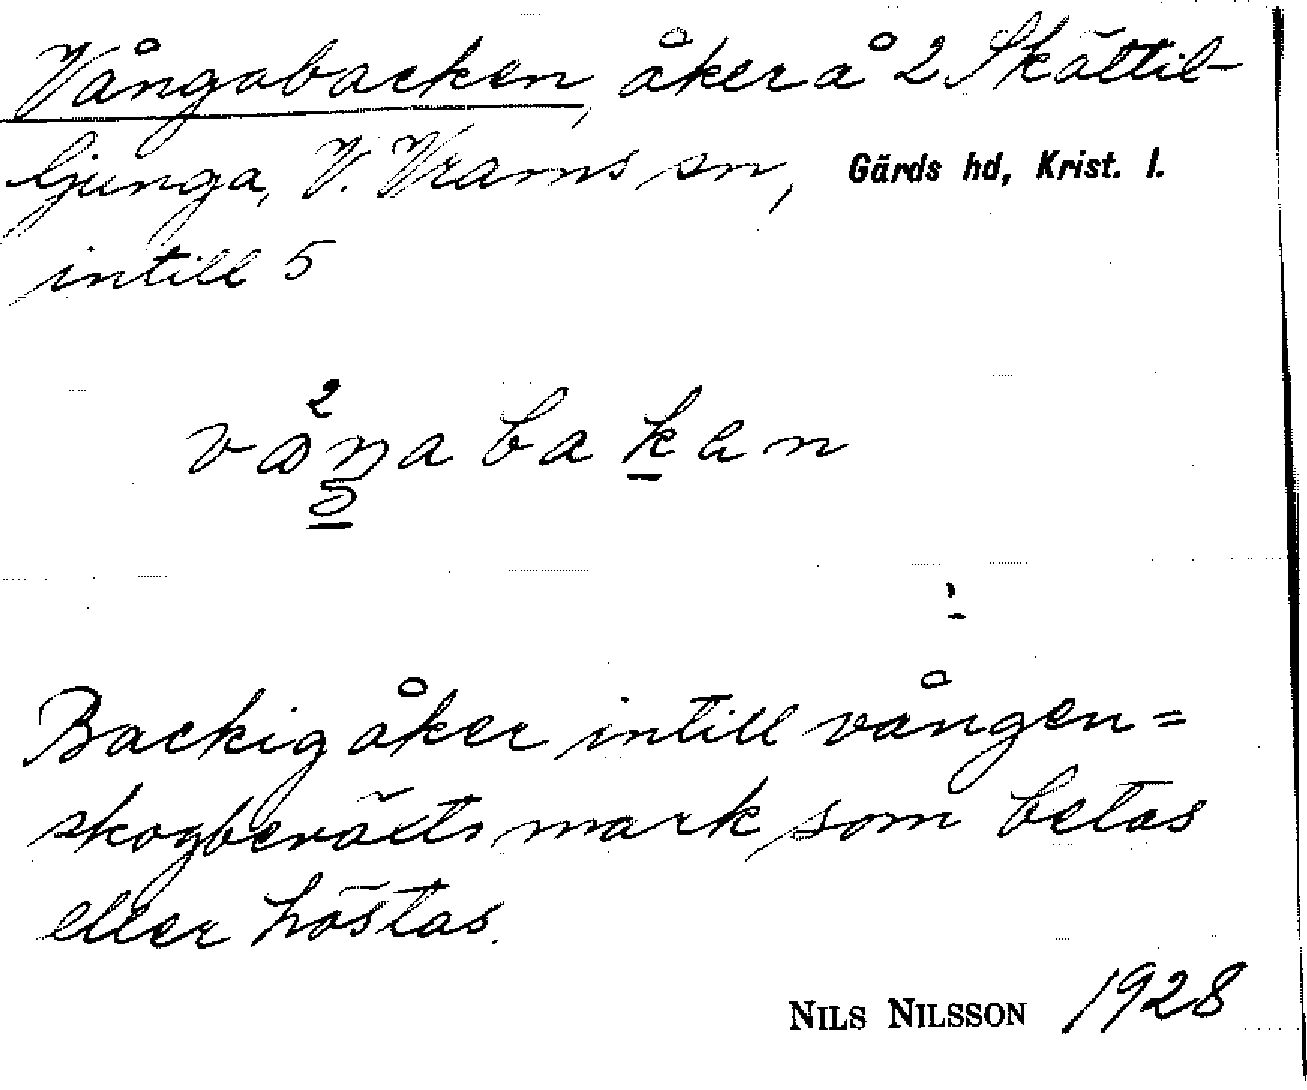 Vångabacken, åker å 2 Skättil-
ljunga, V. Vrams sn, Gärds hd, Krist. l.
intill 5
Backig åker intill vången =
skogbeväxts mark, som betas
eller höstas.
NILS NILSSON 1928